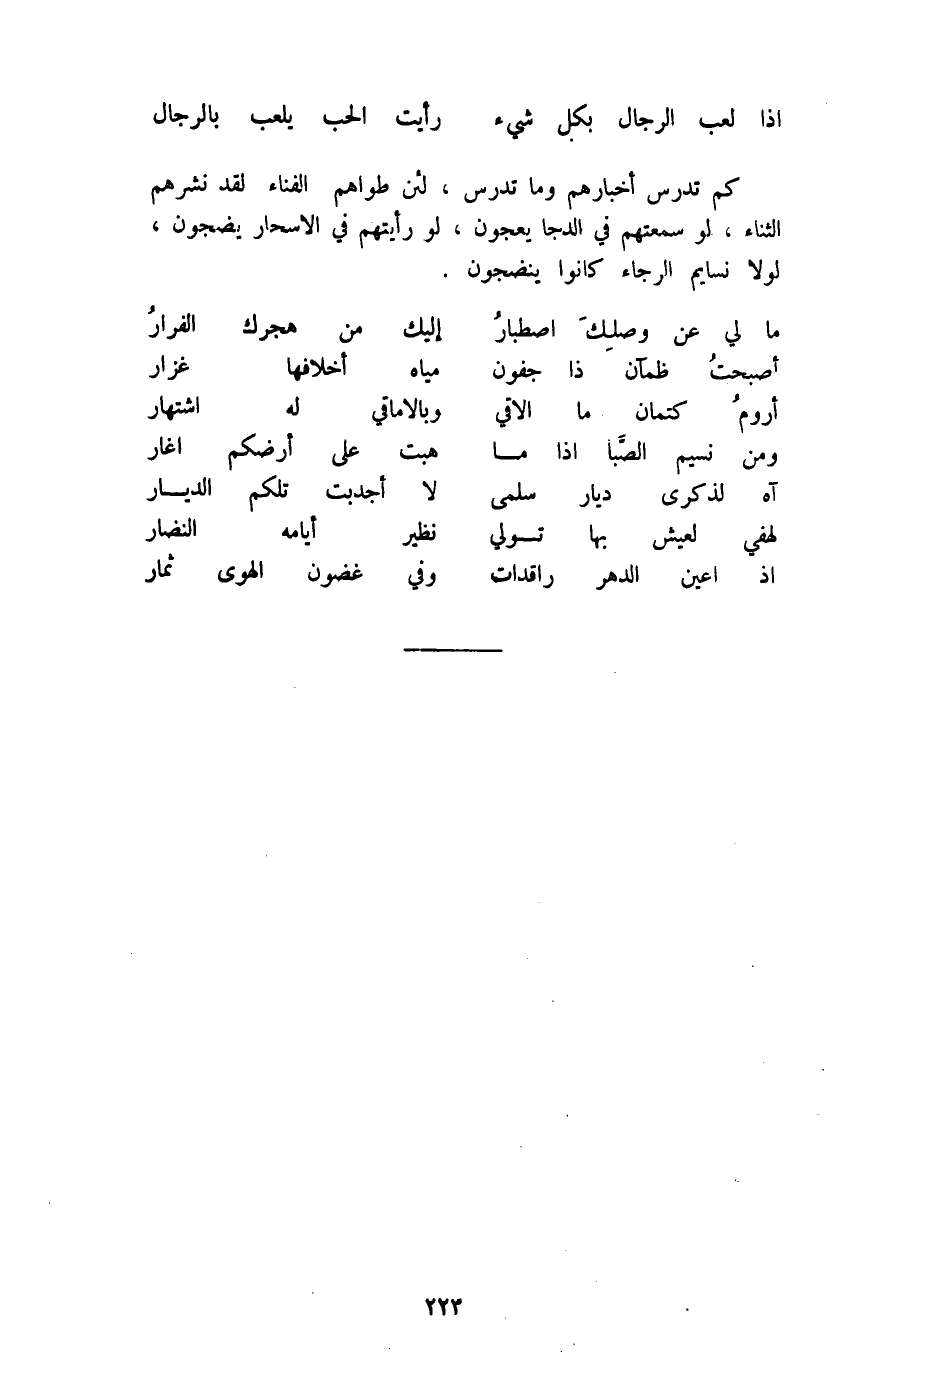 اذا لعب الرجال بكل شيء رأيت الحب يلعب بالرجال
كم تدرس أخبارهم وما تدرس ، لئن طواهم الفناء لقد نشرهم
الثناء ، لو سمعتهم في الدجا يعجون ، لو رأيتهم في الاسحار يضجون ،
لولا نسايم الرجاء كانوا ينضجون .
ما لي عن وصلِكَ اصطبارُ إليك من هجرك الفرارُ
أصبحتُ ظمآن ذا جفون مياه أخلافها غزار
أرومُ كتمان ما الاقي وبالاماقي له اشتهار
ومن نسيم الصَّبا اذا مـا هبت على أرضكم اغار
آه لذكرى ديار سلمى لا أجدبت تلكم الديـار
لهفي لعيش بها تـولي نظير أيامه النضار
اذ اعين الدهر راقدات وفي غضون الهوى ثمار
٢٢٣